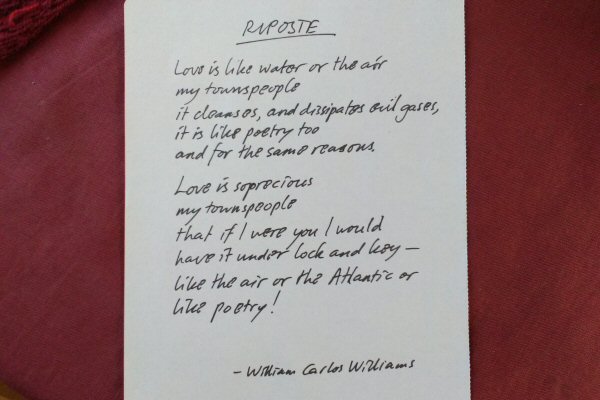 RIPOSTE
Love is like water or the air
my townspeople
it cleanses, and dissipates evil gases,
it is like poetry too
and for the same reasons.
Love is so precious
my townspeople
that if I were you I would
have it under lock and key —
like the air or the Atlantic or
like poetry!
- William Carlos Williams